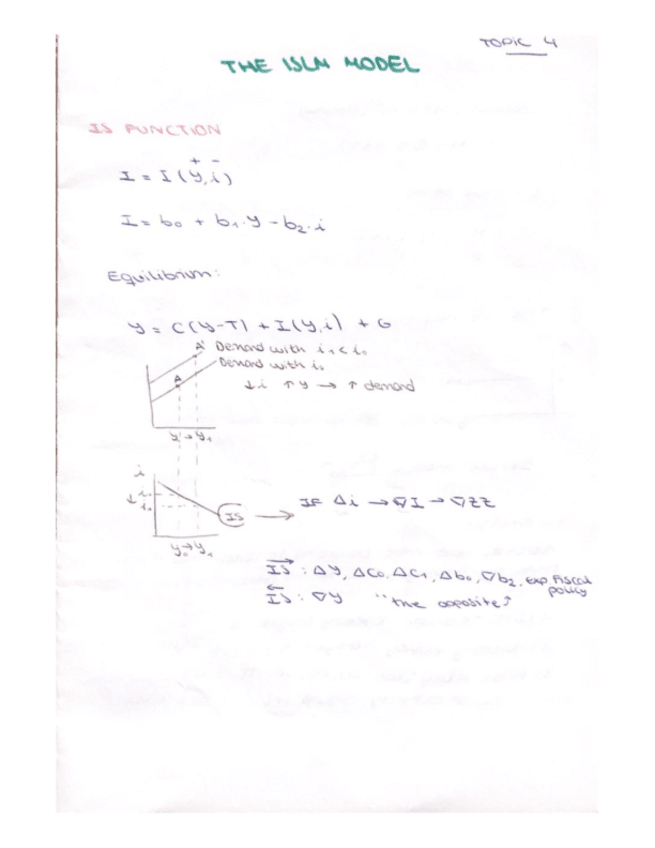 TOPIC 4
THE ISLM MODEL
IS FUNCTION
+ -
I = I (Y, i)
I = b₀ + b₁·Y - b₂·i
Equilibrium:
Y = C(Y-T) + I(Y,i) + G
A' Demand with i₁ < i₀
Demand with i₀
A
↓i ↑Y → ↑ demand
Y → Y₁
i
IS → IF Δi → ∇I → ∇ZZ
Y₀→Y₁
IS→ : ΔY, ΔC₀, ΔC₁, Δb₀, ∇b₂, exp Fiscal policy
IS← : ∇Y "the opposite"